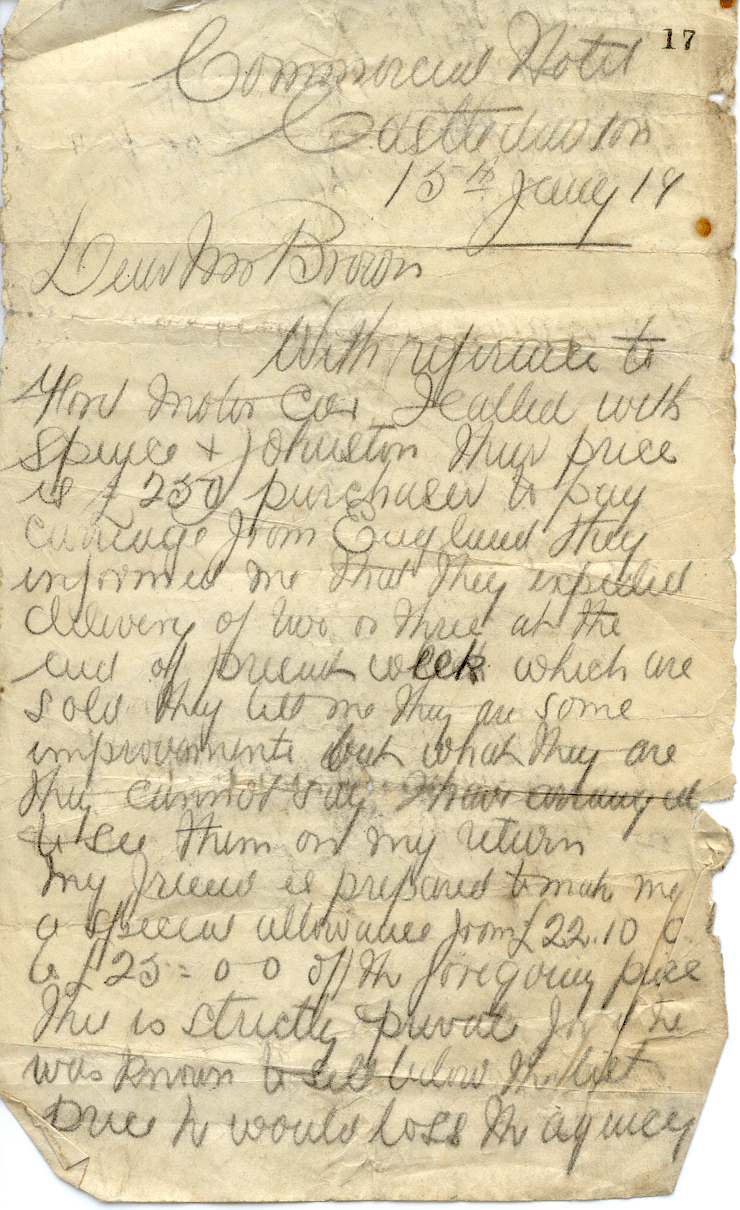 17
Commercial Hotel
Castledawson
15th Jany 19
Dear Mr Brown
With reference to
Ford Motor Car I called with
Spence & Johnston their price
is £250 purchaser to pay
carriage from England they
informed me that they expected
delivery of two or three at the
end of present week which are
sold they tell me they are some
improvements but what they are
they cannot say I have arranged
to see them on my return
My friend is prepared to make me
a special allowance from £22.10 0
to £25=0-0 off the foregoing price
This is strictly private for if he
was known to sell below the list
price he would loss the agency